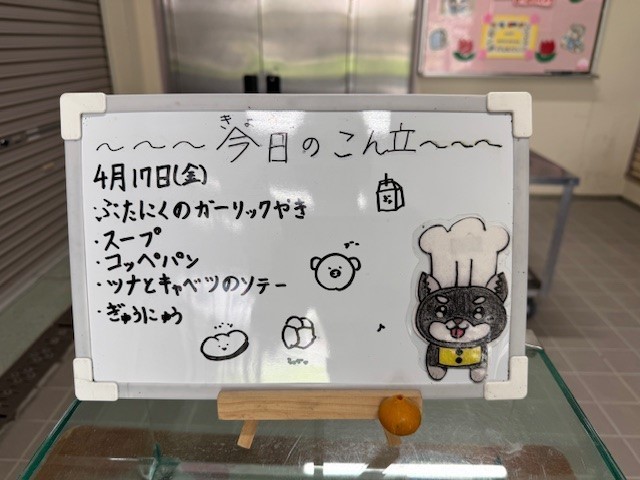 ～～～今日のこん立～～～
きょ
4月17日(金)
・ぶたにくのガーリックやき
・スープ
・コッペパン
・ツナとキャベツのソテー
・ぎゅうにゅう